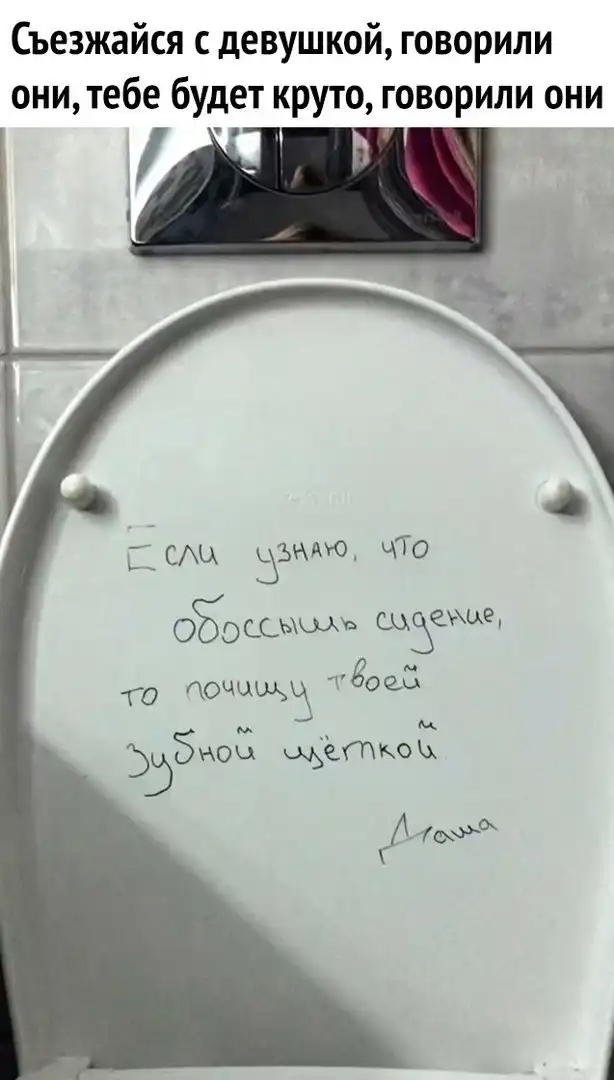 Съезжайся с девушкой, говорили
они, тебе будет круто, говорили они
Если узнаю, что
обоссышь сидение,
то почищу твоей
зубной щёткой
Даша